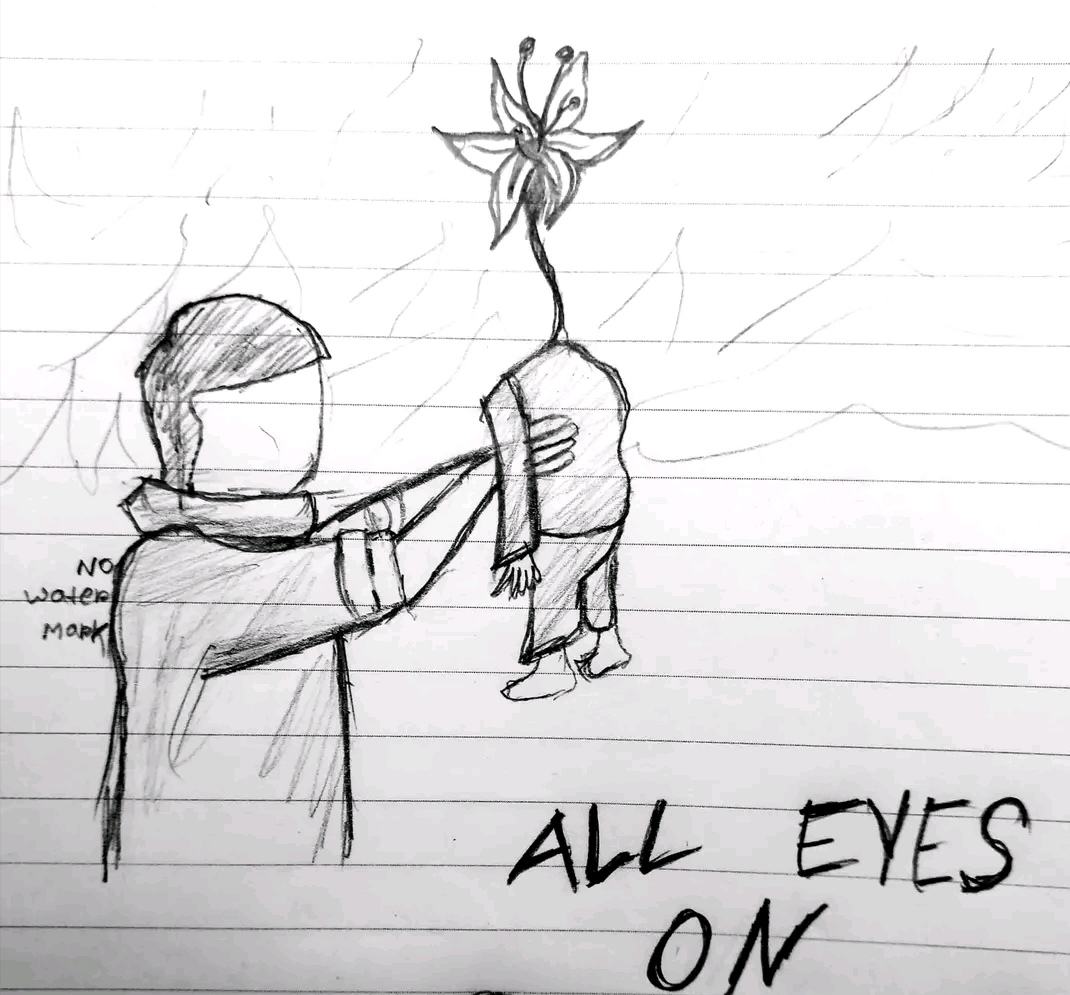 NO
water
mark
ALL EYES
ON